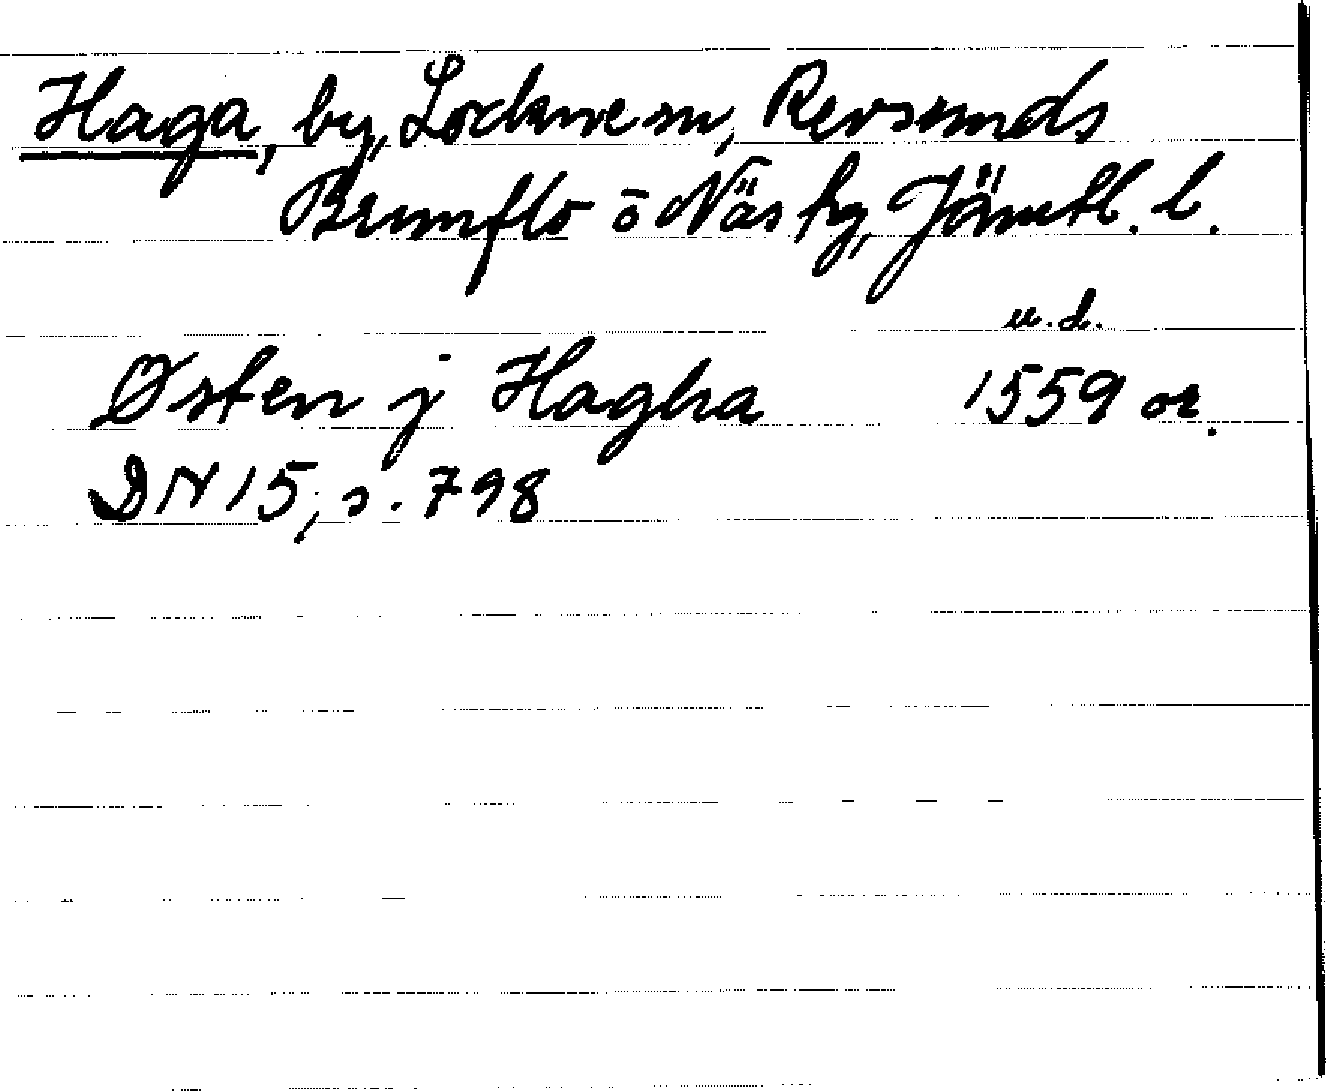 Haga, by, Lockne sn, Revsunds
Brunflo o Näs hg, Jämtl. l.
u.d.
Østen j Hagha 1559 or.
DN 15, s. 798